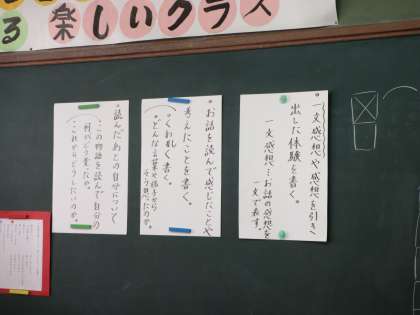 る楽しいクラス
。一文感想や感想を引き
出した体験を書く。
一文感想…お話の感想を
一文で表す。
。お話を読んで感じたことや
考えたことを書く。
くわしく書く。
どんな言葉や様子から
そう思ったのか。
。読んだあとの自分について
この物語を読んで自分の
何がどう変わったか。
これからどうしたいのか。